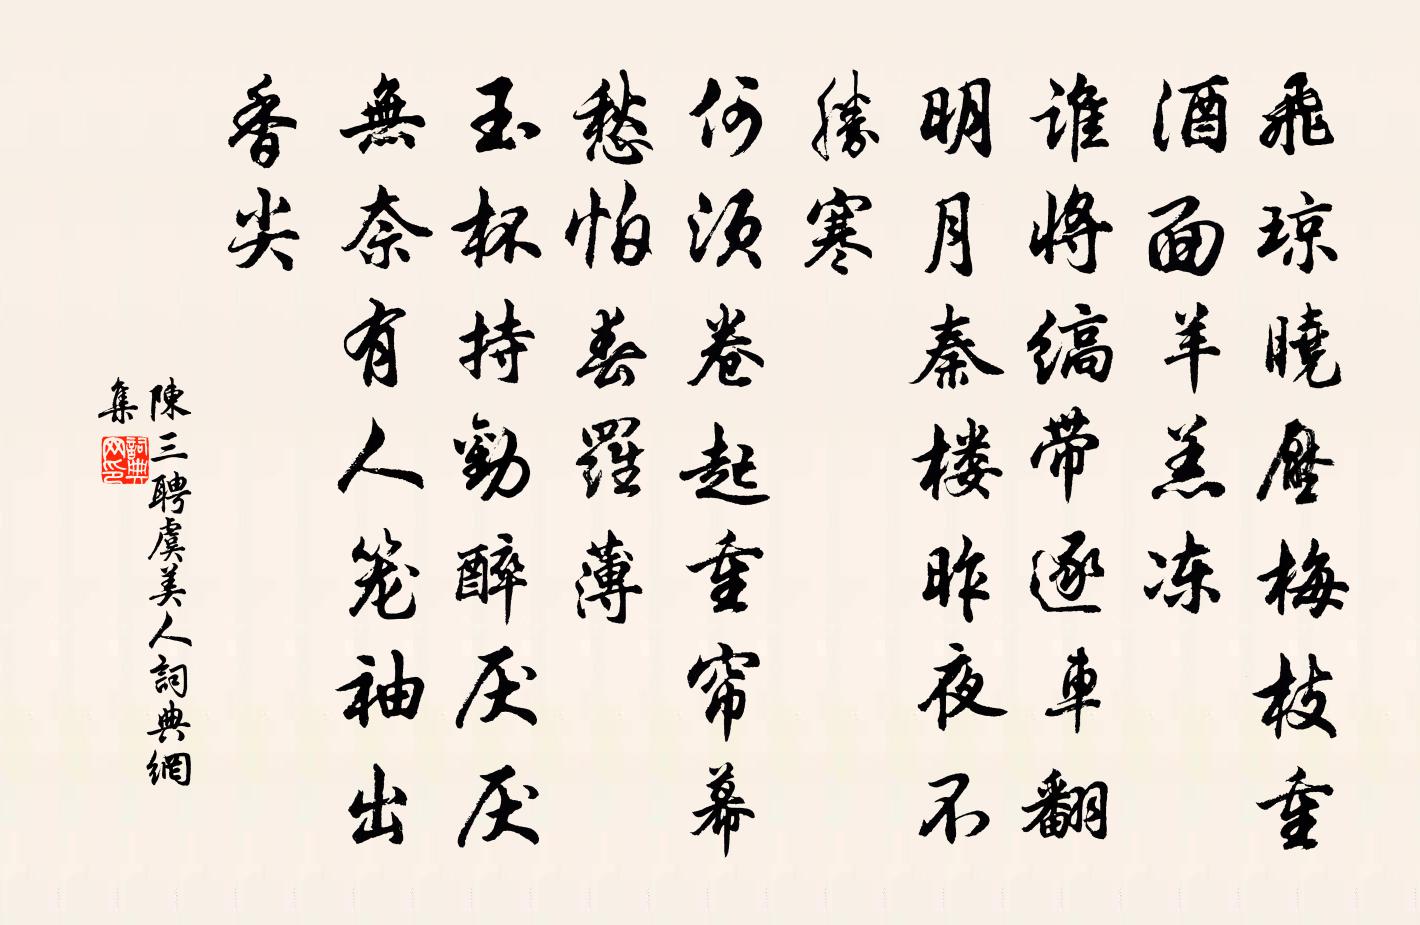 飛琼曉壓梅枝重
酒面羊羔冻
谁將縞带逐車翻
明月秦楼昨夜不
勝寒
何须卷起重帘幕
愁怕春羅薄
玉杯持勸醉厌厌
無奈有人笼袖出
香尖
陳三聘虞美人詞典網
集
詞典
网印